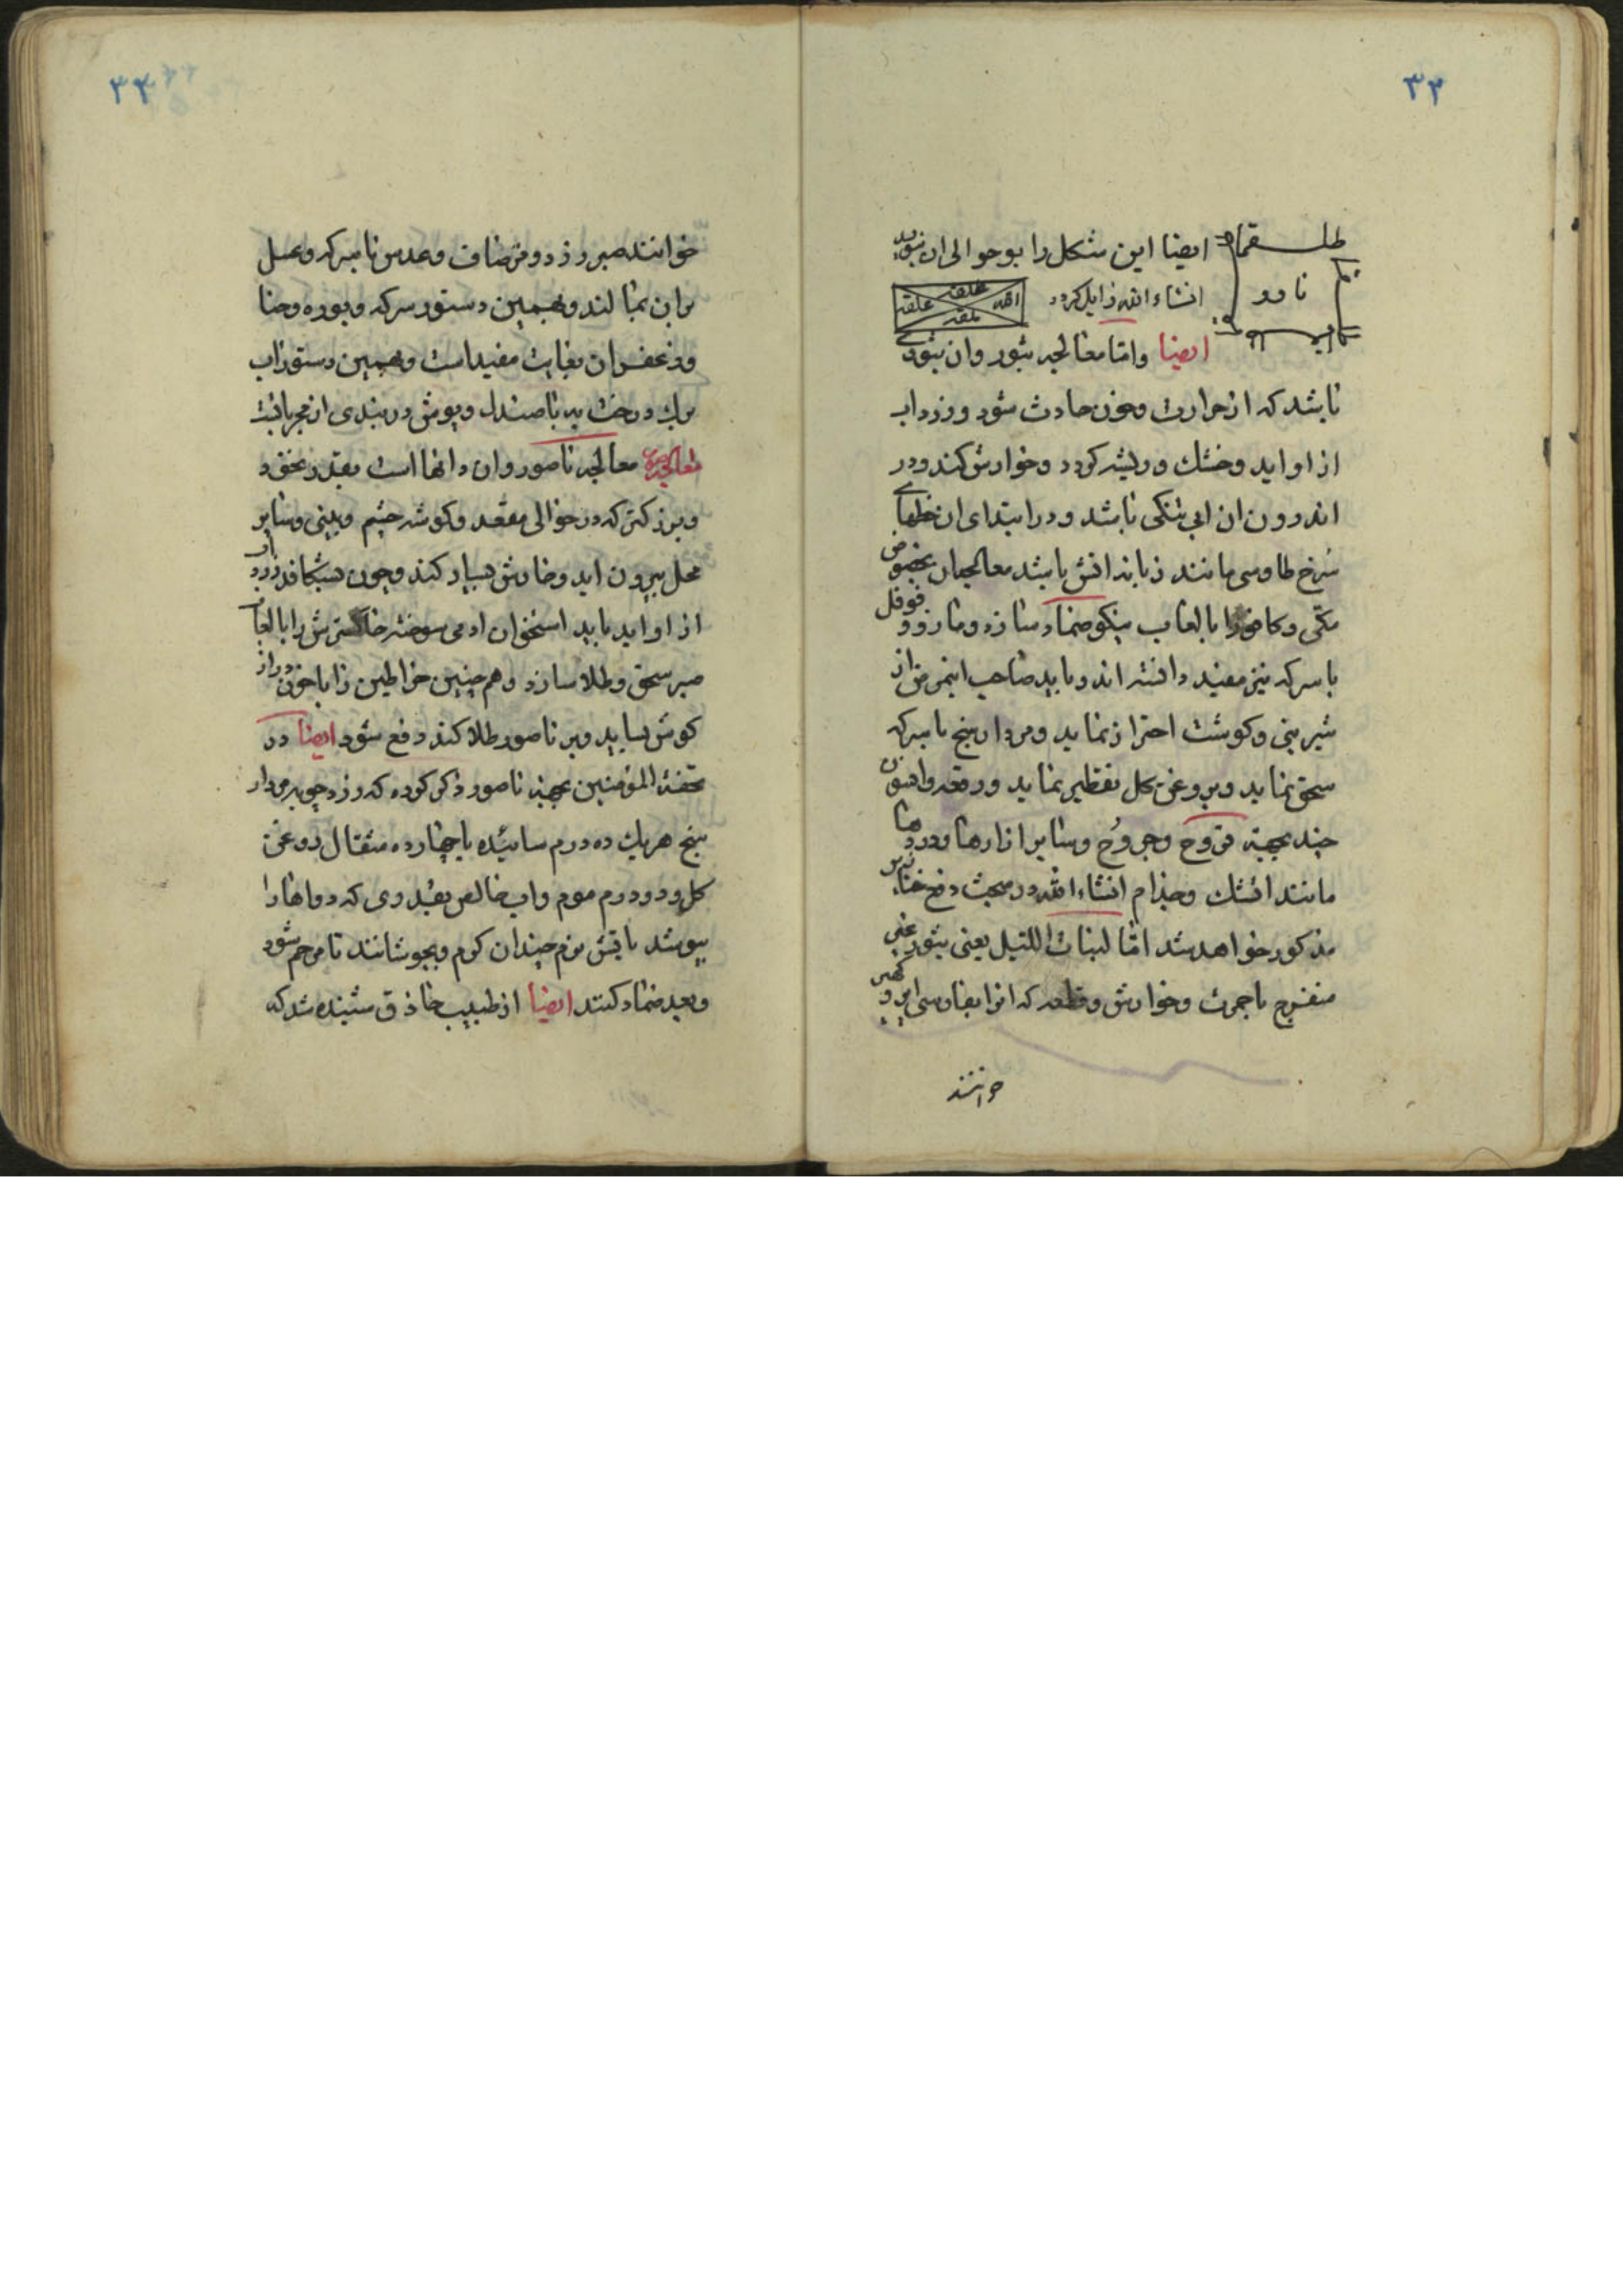 ۳۳
ایضا این شکل را بوحوالی ان بنویسد
ناور
انشاءالله زایل کردد
الله علقه علقه علقه
ایضا وامّا معالجه بثور وان بثوری
باشد که از حرارت وخون حادث شود وزرداب
از او اید وخشک وریشه کردد وخوارش کند ودر
اندرون ان ابی تنکی باشد ودر ابتدای ان خطهای
سُرخ طاوسی مانند زبانه اتش باشد معالجهان بخصوص
مکّی وکافور با لعاب نیکو ضماد سازد ومازو و فوفل
با سرکه نیز مفید دانسته اند وباید صاحب اینمرض از
شیرینی وکوشت احتراز نماید ومردارسنج با سرکه
سحق نماید وبروغن کل تقطیر نماید ورقعه وافسون
چند بجهة قروح وجروُح وسایر ازارها ودردها
مانند اتشک وجذام انشاءالله در مبحث دفع خنازیر
مذکور خواهد شد امّا لبنات اللّیل یعنی بثور غیر
متقرح با حمرت وخوارش و که انرا بفارسی ایر و کهیر
خوانند
۳۴
خوانند صبر زرد و وعدس با سرکه وعسل
بران بمالند وبهمین دستور سرکه وبوره وحنا
وزعفران بغایت مفید است وبهمین دستور اب
برک درخت بید با صندل وپوش دربندی از مجربانست
معالجه معالجه ناصور وان دانها است بقدر نخود
وبزرکتر که در حوالی مقعد وکوشه چشم وبینی وسایر
محل بیرون اید وخارش بسیار کند وچون بشکافد زرداب
از او اید باید استخوان ادمی سوخته خاکسترش را با لعاب
صبر سحق وطلا سازد وهم چنین خراطین را با خون دراز
کوش بساید وبر ناصور طلا کند دفع شود ایضا در
تحفة المؤمنین بجهة ناصور ذکر کرده که زرد چوبه مردار
سنج هریک ده درم سائیده با چهارده مثقال روغن
کل ودو درم موم واب خالص بقدری که دواها را
بپوشد باتش نرم چندان کرم وبجوشانند تا مرحم شود
وبعد ضماد کنند ایضا از طبیب حاذق شنیده شد که